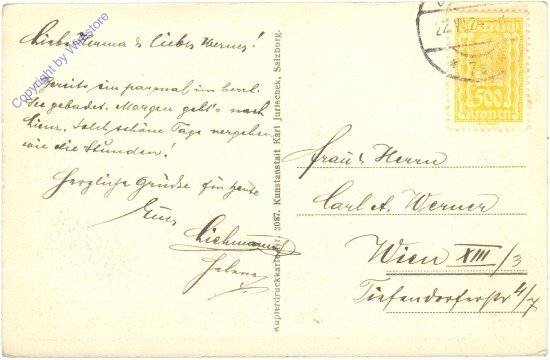 Liebe Henna & lieber Werner!
Bereits ein paarmal im herrl.
See gebadet. Morgen geht's nach
Lienz. Solch schöne Tage vergehen
wie die Stunden!
Herzliche Grüsse für heute
Euer
Helene
Copyright by WHstore
Kupferdruckkarte Nr. 3087. Kunstanstalt Karl Jurischek, Salzburg.
22. 24
500
Kronen
Frau & Herrn
Carl A. Werner
Wien XIII/3
Tiefendorferstr 4/7